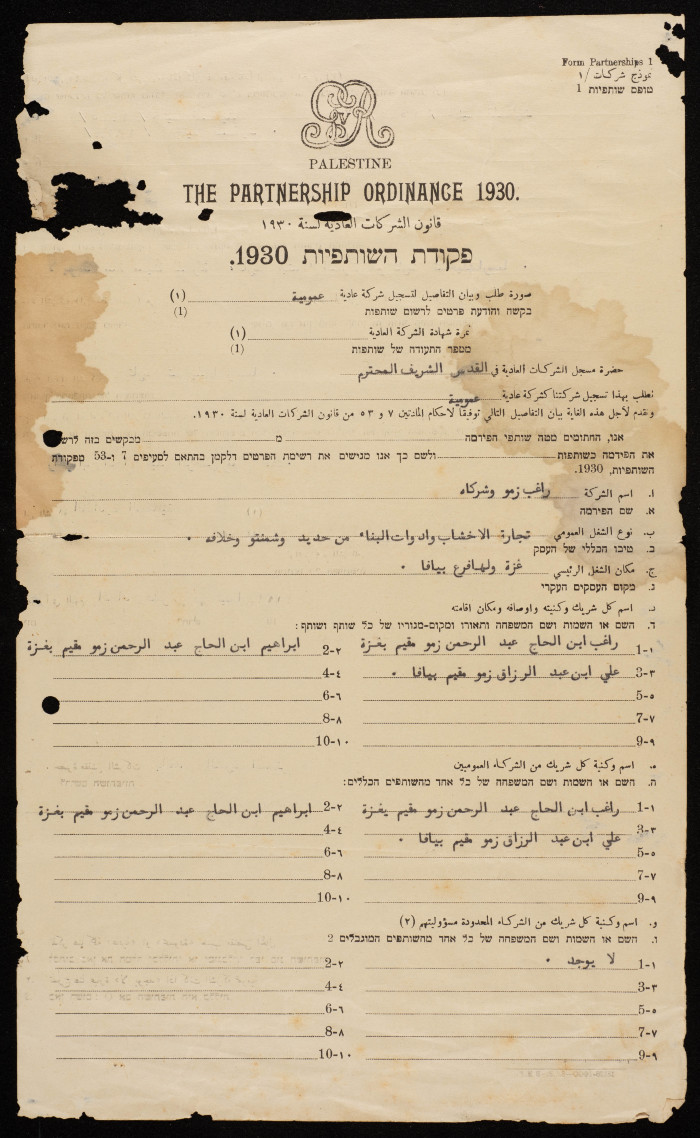 Form Partnerships 1
نموذج شركات /١
טופס שותפיות 1
PALESTINE
THE PARTNERSHIP ORDINANCE 1930.
قانون الشركات العادية لسنة ١٩٣٠
פקודת השותפיות 1930.
صورة طلب وبيان التفاصيل لتسجيل شركة عادية عمومية (١)
בקשה והודעת פרטים לרשום שותפות (1)
نمرة شهادة الشركة العادية (١)
מספר התעודה של שותפות (1)
حضرة مسجل الشركات العادية في القدس الشريف المحترم
نطلب بهذا تسجيل شركتنا كشركة عادية عمومية
ونقدم لاجل هذه الغاية بيان التفاصيل التالي توفيقا لاحكام المادتين ٧ و ٥٣ من قانون الشركات العادية لسنة ١٩٣٠.
אנו, החתומים מטה שותפי הפירמה מ מבקשים בזה לרשם
את הפירמה כשותפות ולשם כך אנו מגישים את רשימת הפרטים דלקמן בהתאם לסעיפים 7 ו-53 מפקודת
השותפיות, 1930.
ا. اسم الشركة راغب زمو وشركاه
א. שם הפירמה
ب. نوع الشغل العمومي تجارة الاخشاب وادوات البناء من حديد وشمنتو وخلافه .
ב. טיבו הכללי של העסק
ج. مكان الشغل الرئيسي غزة ولها فرع بيافا .
ג. מקום העסקים העקרי
د. اسم كل شريك وكنيته واوصافه ومكان اقامته
ד. השם או השמות ושם המשפחה ותאורו ומקום-מגוריו של כל שותף ושותף:
1-١ راغب ابن الحاج عبد الرحمن زمو مقيم بغزة 2-٢ ابراهيم ابن الحاج عبد الرحمن زمو مقيم بغزة
3-٣ علي ابن عبد الرزاق زمو مقيم بيافا . 4-٤
5-٥ 6-٦
7-٧ 8-٨
9-٩ 10-١٠
ه. اسم وكنية كل شريك من الشركاء العموميين
ה. השם או השמות ושם המשפחה של כל אחד מהשותפים הכללים:
1-١ راغب ابن الحاج عبد الرحمن زمو مقيم بغزة 2-٢ ابراهيم ابن الحاج عبد الرحمن زمو مقيم بغزة
3-٣ علي ابن عبد الرزاق زمو مقيم بيافا . 4-٤
5-٥ 6-٦
7-٧ 8-٨
9-٩ 10-١٠
و. اسم وكنية كل شريك من الشركاء المحدودة مسؤوليتهم (٢)
ו. השם או השמות ושם המשפחה של כל אחד מהשותפים המוגבלים 2
1-١ لا يوجد . 2-٢
3-٣ 4-٤
5-٥ 6-٦
7-٧ 8-٨
9-٩ 10-١٠